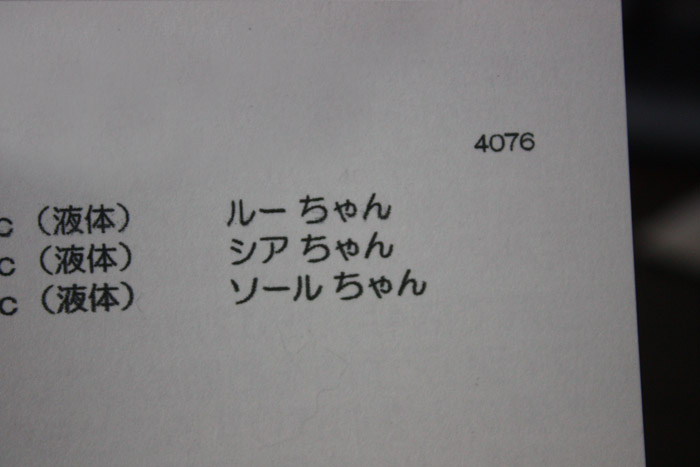 4076
c（液体） ルー ちゃん
c（液体） シア ちゃん
c（液体） ソール ちゃん